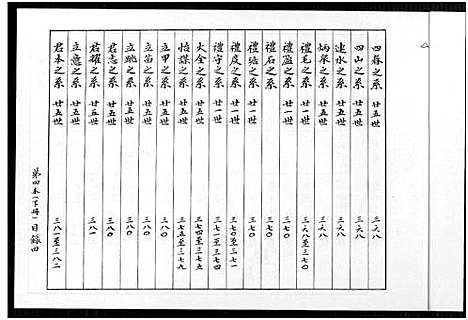 四喜之系 廿五世 三六八
四山之系 廿五世 三六八
連水之系 廿五世 三六八
炳泉之系 廿五世 三六八
禮毛之系 廿一世 三六八至三七〇
禮盈之系 廿一世 三七〇
禮石之系 三七〇
禮結之系 廿一世 三七〇
禮度之系 廿一世 三七〇至三七一
禮守之系 廿一世 三七一至三七四
火全之系 廿五世 三七四至三七五
恒謀之系 廿五世 三七五至三七九
立甲之系 廿五世 三八〇
立苗之系 廿五世 三八〇
立跳之系 廿五世 三八〇
君志之系 廿五世 三八〇
君耀之系 廿五世 三八一
立意之系 廿五世
君本之系 廿五世 三八一至三八二
第四本(下冊)目錄四